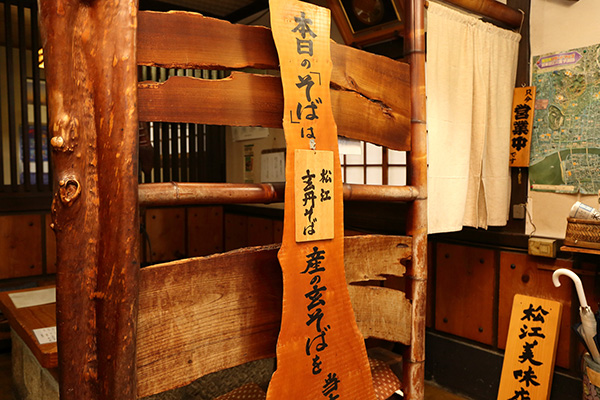 本日の「そば」は、
松江
玄丹そば
産の玄そばを
当
只今
営業中
松江美味